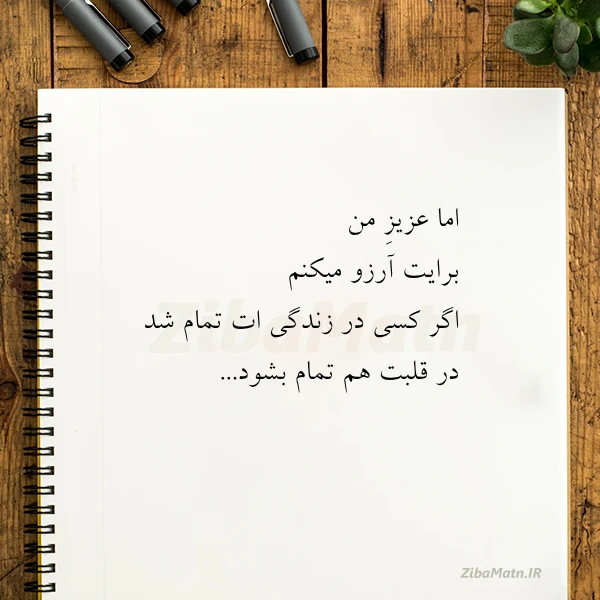 اما عزیزِ من
برایت آرزو میکنم
اگر کسی در زندگی ات تمام شد
در قلبت هم تمام بشود...
ZibaMatn
ZibaMatn.IR